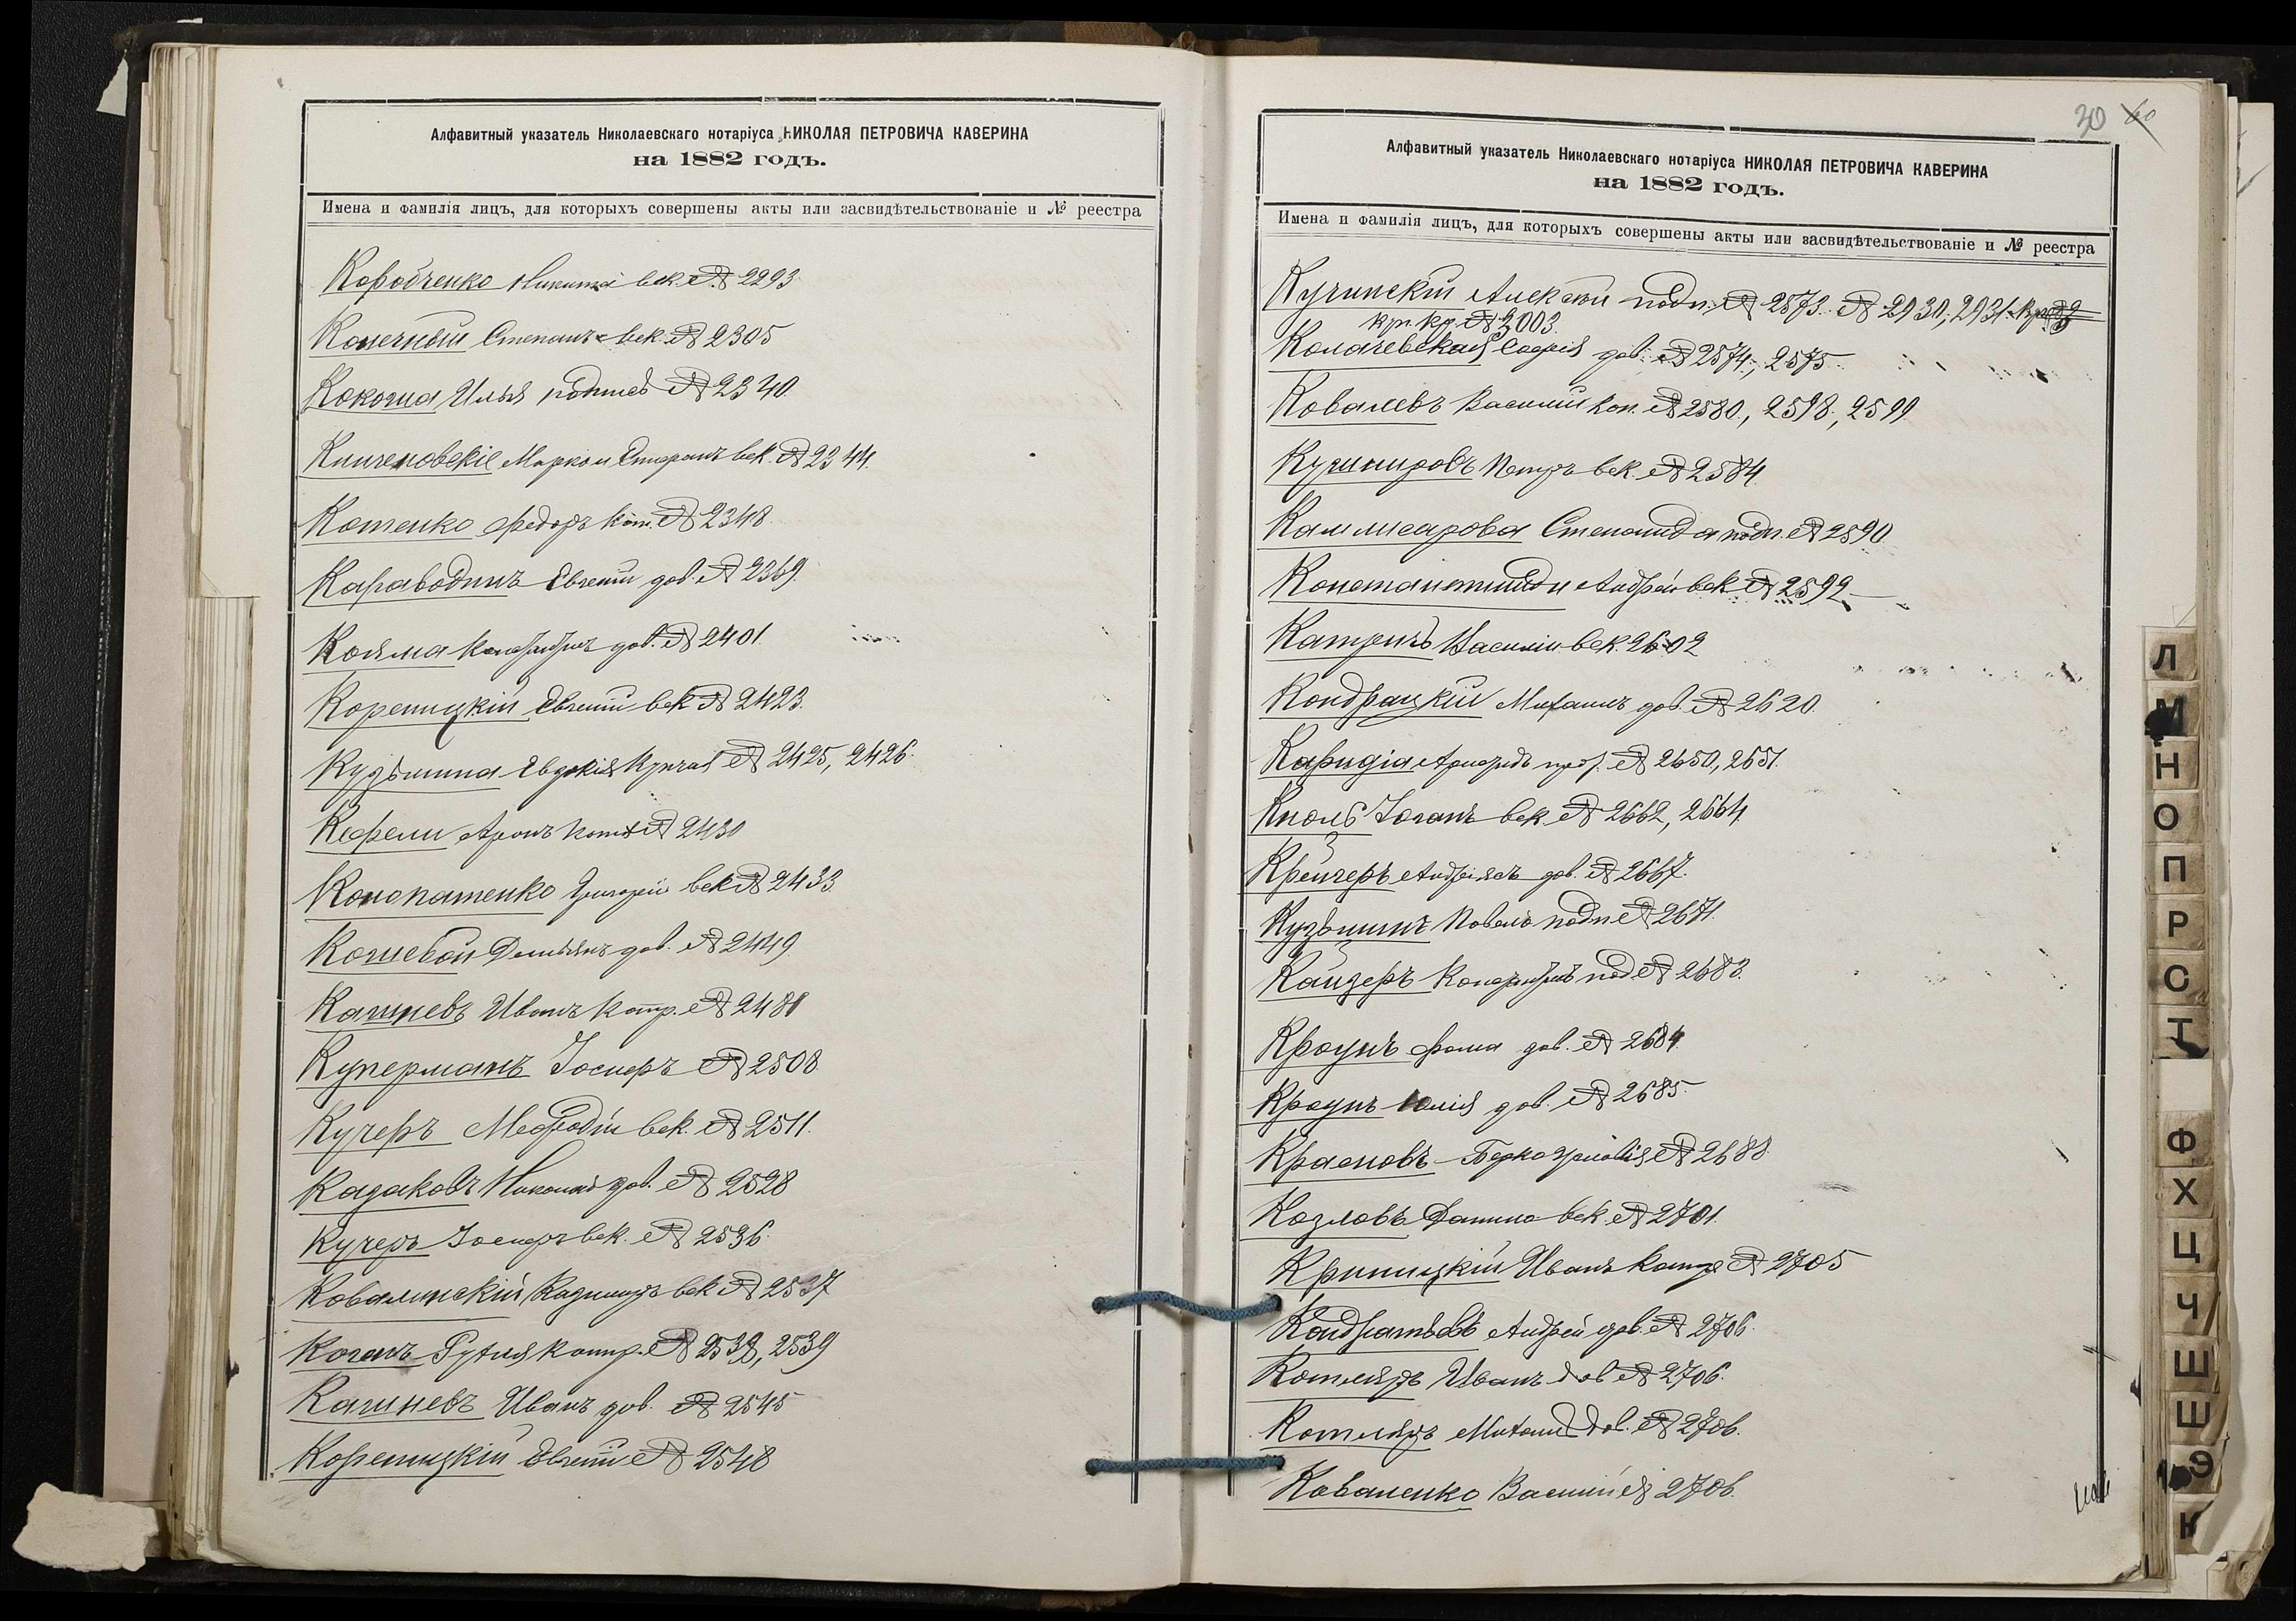 Алфавитный указатель Николаевскаго нотаріуса НИКОЛАЯ ПЕТРОВИЧА КАВЕРИНА
на 1882 годъ.
Имена и фамилія лицъ, для которыхъ совершены акты или засвидѣтельствованіе и № реестра
Коробченко Никита век. № 2293.
Конечный Степанъ век. № 2305
Кокоша Илья подпись № 2340.
Марко и Стефанъ век. № 2344.
Котенко Федоръ коп. № 2348.
Караводинъ Евгеній дов. № 2369.
Койма дов. № 2401.
Кореницкій Евгеній век № 2423.
Кузьмина Евдокія купчая № 2425, 2426.
Кефели Аронъ № 2430
Конопатенко Григорій век № 2433
Кошевой Демьянъ дов. № 2449.
Кашневъ Иванъ контр. № 2480
Куперманъ Іосифъ № 2508
Кучеръ Мефодій век. № 2511.
Казаковъ Николай дов. № 2528
Кучеръ Іосифъ век. № 2536.
Ковалинскій Казимиръ век № 2537
Коганъ Руфля контр. № 2538, 2539
Кашневъ Иванъ дов. № 2545
Кореницкій Евгеній № 2548
30 60
Алфавитный указатель Николаевскаго нотаріуса НИКОЛАЯ ПЕТРОВИЧА КАВЕРИНА
на 1882 годъ.
Имена и фамилія лицъ, для которыхъ совершены акты или засвидѣтельствованіе и № реестра
Кучинскій Алексѣй подп. № 2573. № 2930, 2931.
кр. № 3003.
Колачевская Софія дов. № 2574, 2575.
Ковалевъ Василій коп. № 2580, 2598, 2599
Кушнировъ Петръ век. № 2584.
Каммисарова Степанида подп. № 2590
Константиниди Андрей век № 2592
Катринъ Василій век. 2602
Кондрацкій Михаилъ дов. № 2620.
Каридіа № 2650, 2651.
Кноль Іоганъ век № 2662, 2664
Крейчеръ Андреасъ дов. № 2667.
Кузьминъ Павелъ подп № 2671.
Кайзеръ под № 2683.
Кроунъ Фома дов. № 2684.
Кроунъ Юлія дов. № 2685.
Красновъ Берко № 2688.
Козловъ Данило век. № 2701.
Криницкій Иванъ контр № 2705
Кондратьевъ Андрей дов. № 2706.
Котляръ Иванъ дов № 2706.
Котляръ Михаилъ дов. № 2706.
Коваленко Василій № 2706.
Л
М
Н
О
П
Р
С
Т
Ф
Х
Ц
Ч
Ш
Щ
Э